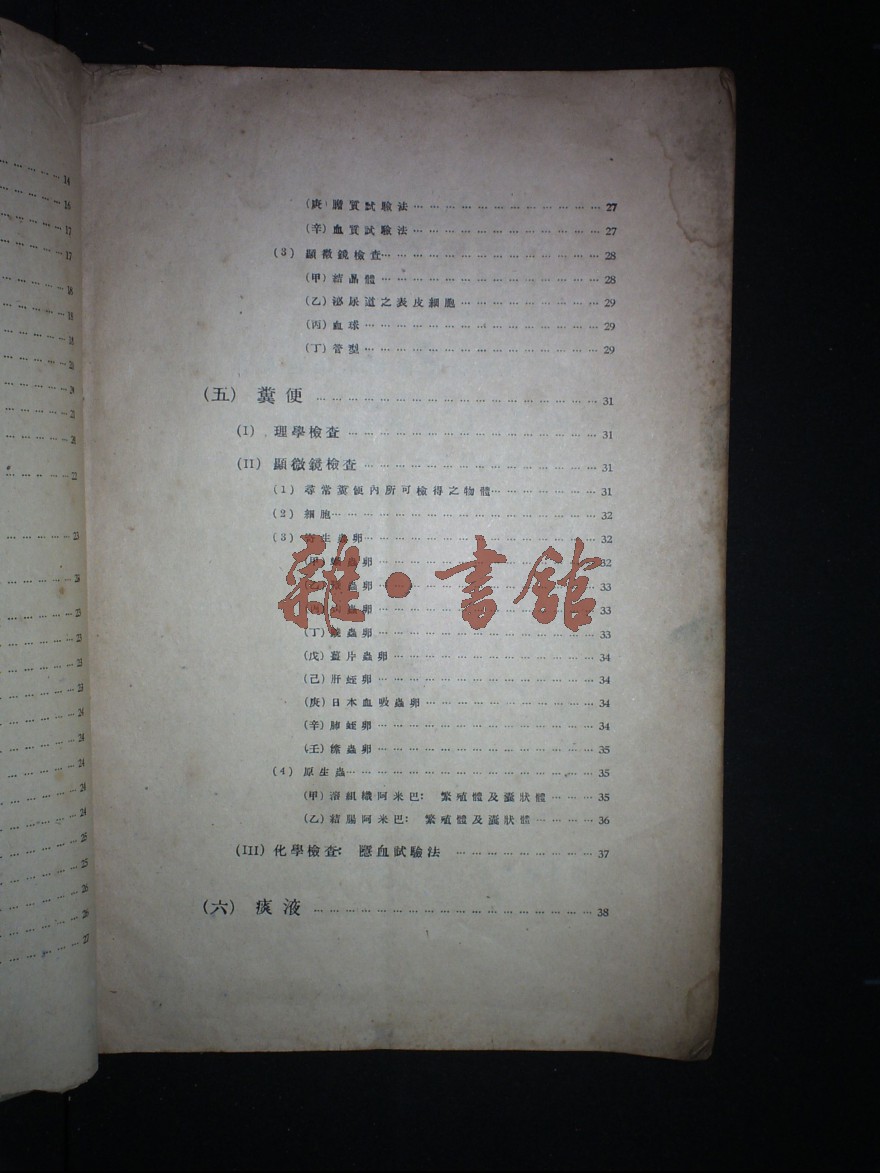 14
16
17
17
18
18
18
20
20
21
22
23
24
23
23
23
23
24
24
24
24
25
25
26
26
27
(庚) 膽質試驗法 … 27
(辛) 血質試驗法 … 27
(3) 顯微鏡檢查 … 28
(甲) 結晶體 … 28
(乙) 泌尿道之表皮細胞 … 29
(丙) 血球 … 29
(丁) 管型 … 29
(五) 糞便 … 31
(I) 理學檢查 … 31
(II) 顯微鏡檢查 … 31
(1) 尋常糞便內所可檢得之物體 … 31
(2) 細胞 … 32
(3) 寄生蟲卵 … 32
(甲) 蟲卵 … 32
(乙) 蟲卵 … 33
(丙) 蟲卵 … 33
(丁) 蟲卵 … 33
(戊) 薑片蟲卵 … 34
(己) 肝蛭卵 … 34
(庚) 日本血吸蟲卵 … 34
(辛) 肺蛭卵 … 34
(壬) 絛蟲卵 … 35
(4) 原生蟲 … 35
(甲) 溶組織阿米巴: 繁殖體及囊狀體 … 35
(乙) 結腸阿米巴: 繁殖體及囊狀體 … 36
(III) 化學檢查: 隱血試驗法 … 37
(六) 痰液 … 38
雜·書館